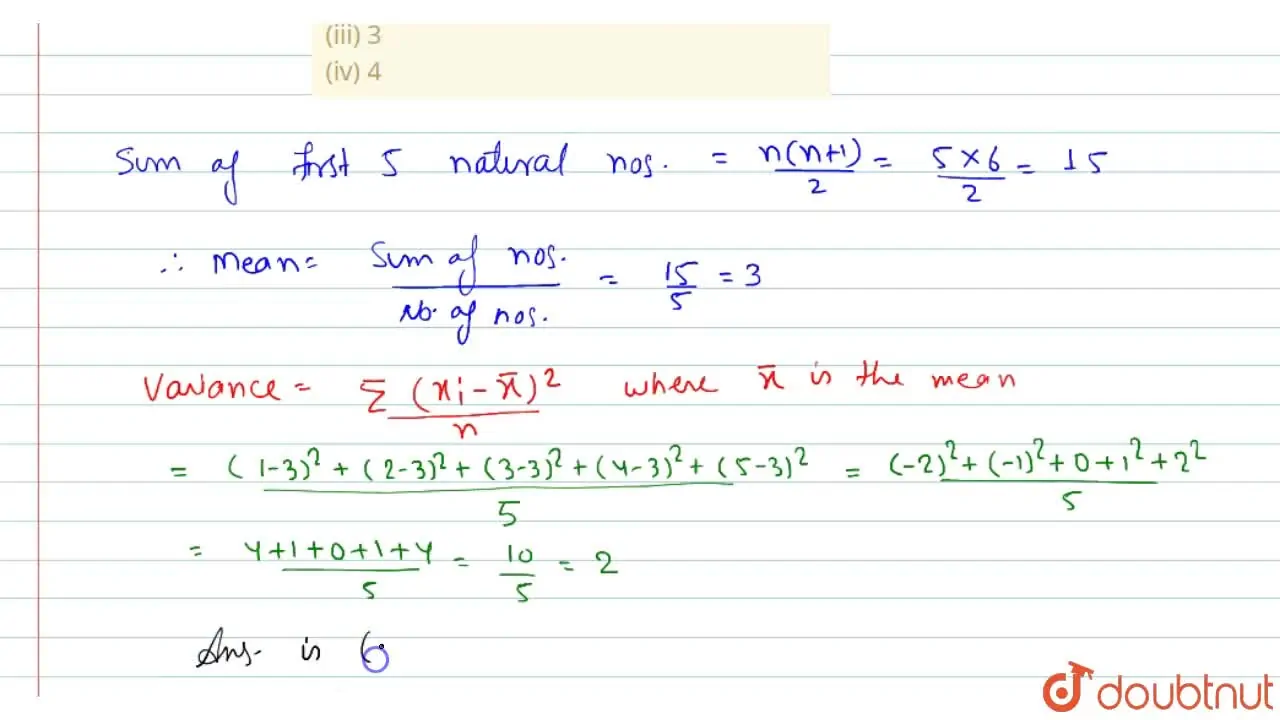 (iii) 3
(iv) 4
Sum of first 5 natural nos. = n(n+1)/2 = 5×6/2 = 15
∴ Mean = Sum of nos./No. of nos. = 15/5 = 3
Variance = Σ(xi - x̄)²/n where x̄ is the mean
= (1-3)²+(2-3)²+(3-3)²+(4-3)²+(5-3)²/5 = (-2)²+(-1)²+0+1²+2²/5
= 4+1+0+1+4/5 = 10/5 = 2
Ans. is (
doubtnut